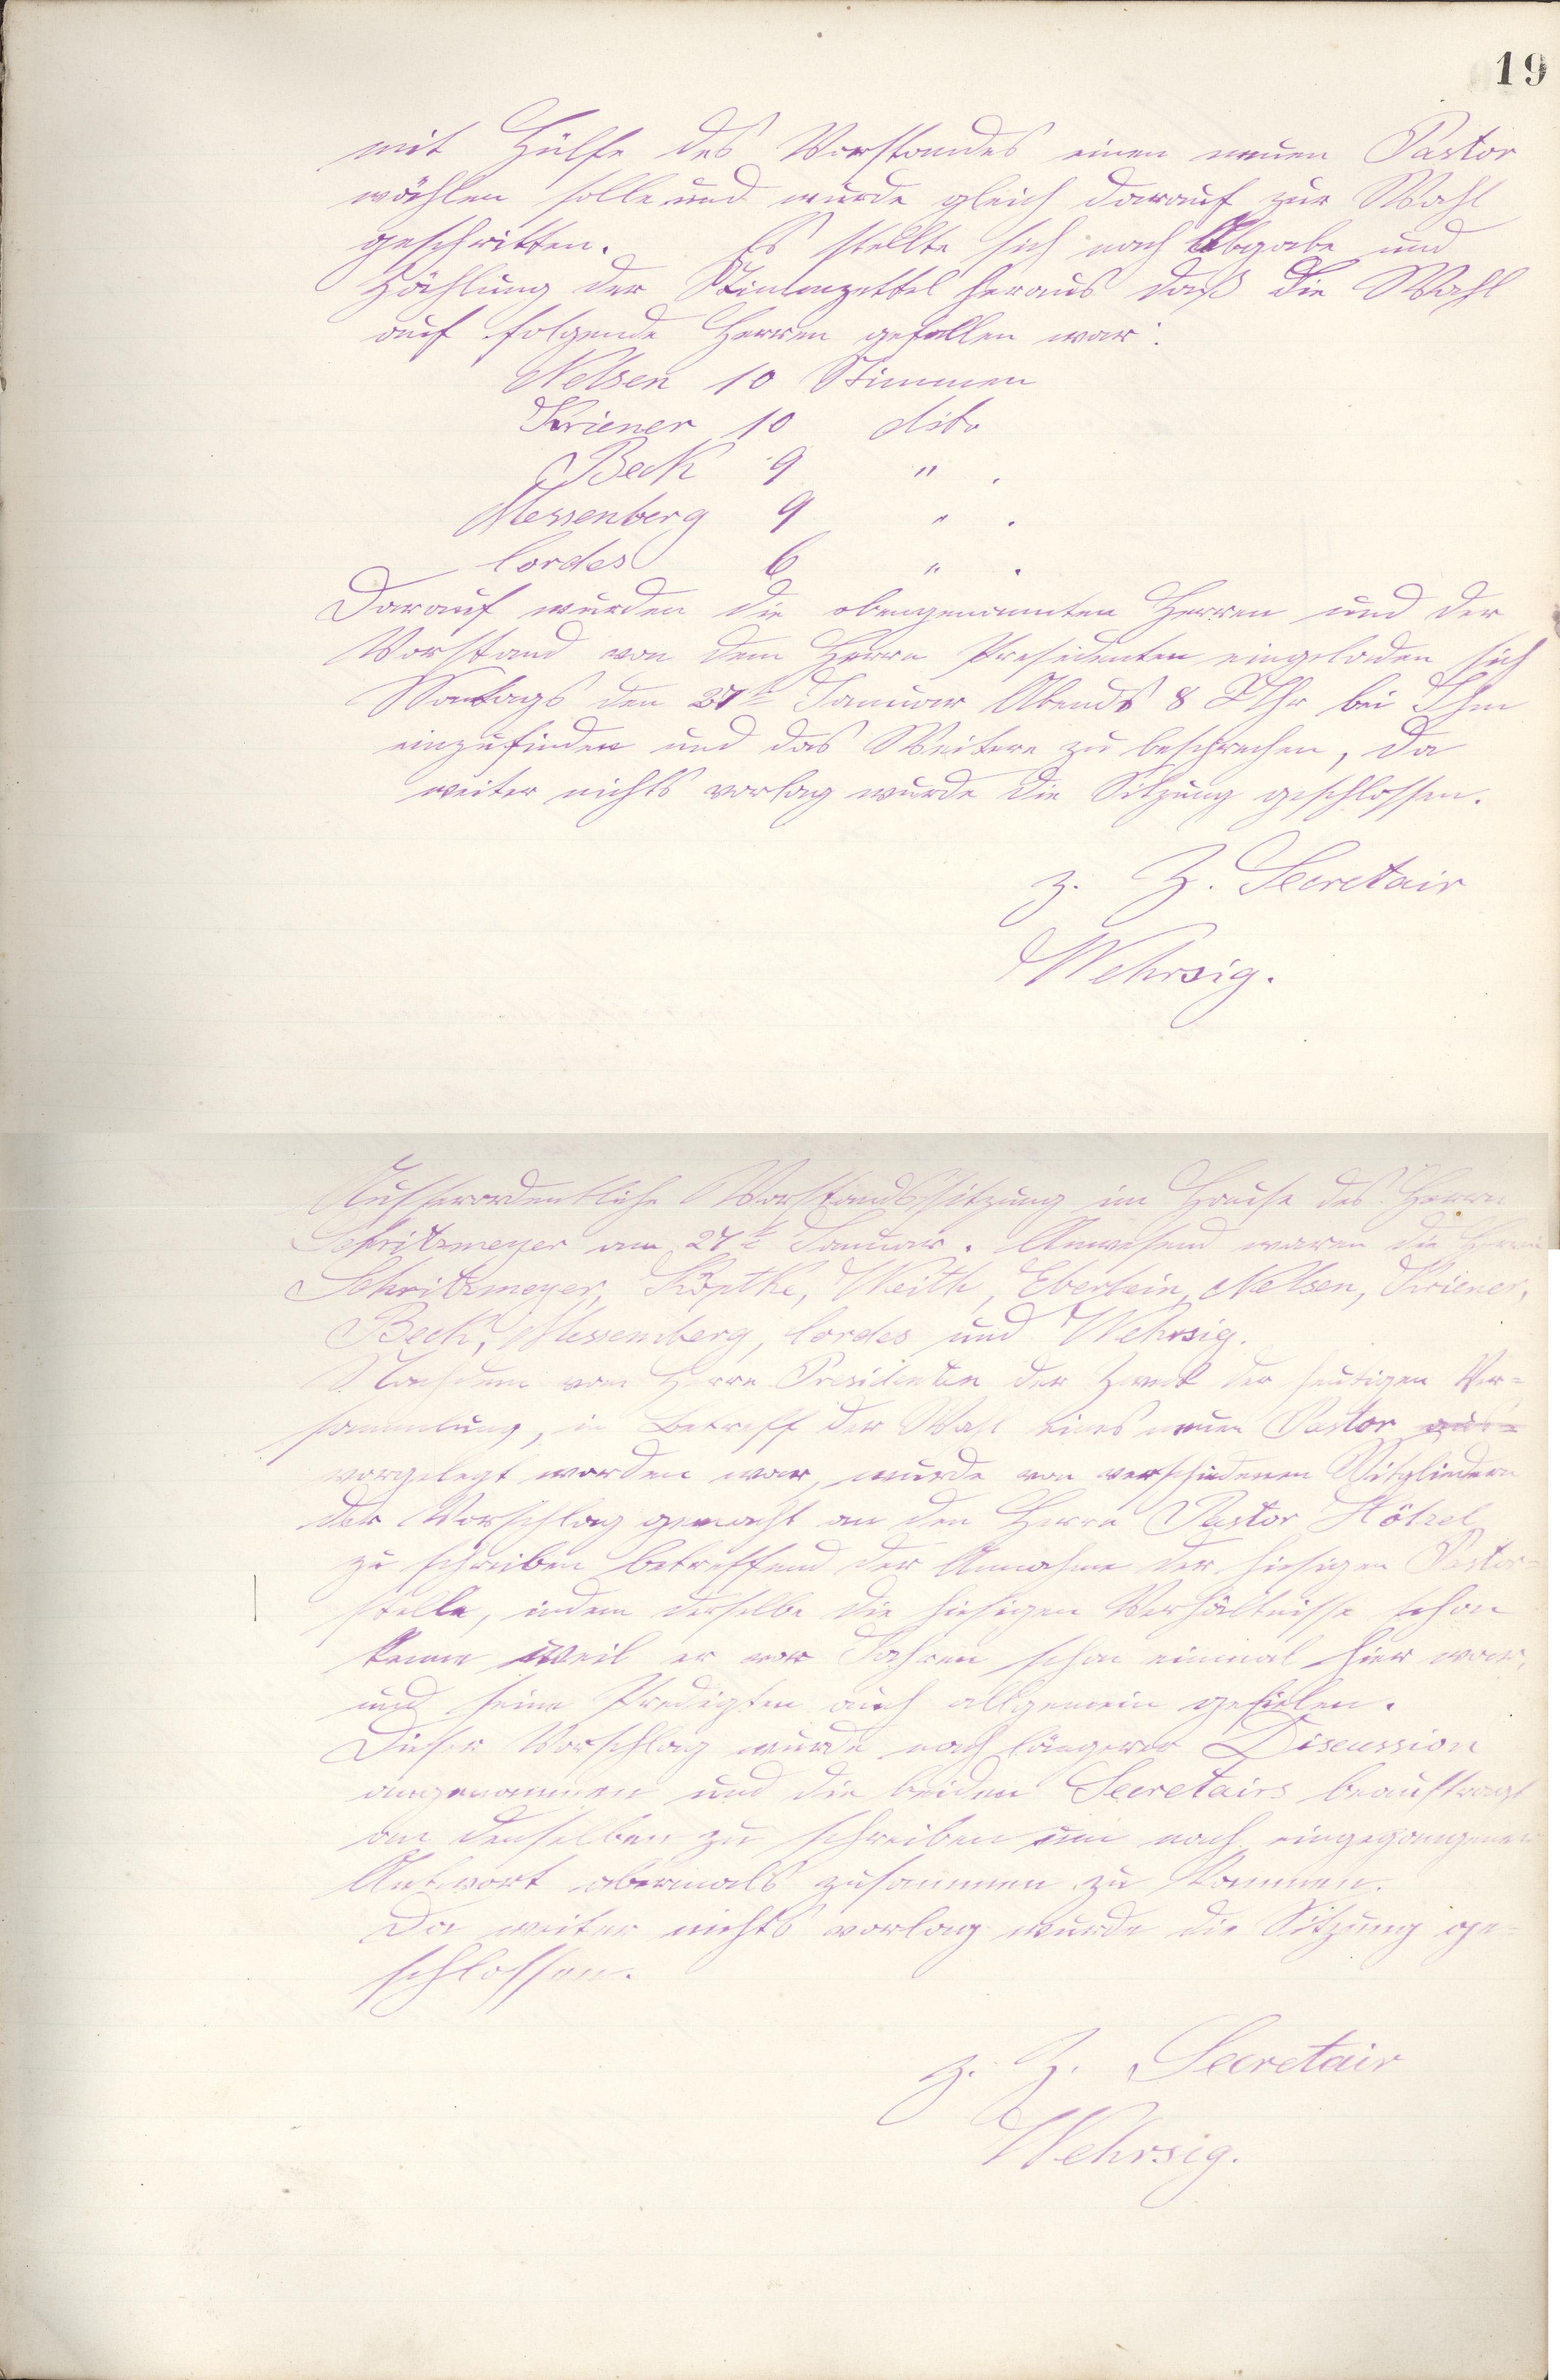 19
mit Hülfe des Vorstandes einen neuen Pastor
wählen solle und wurde gleich darauf zur Wahl
geschritten. Es stellte sich nach Abgabe und
Zählung der Stimmzettel heraus daß die Wahl
auf folgende Herren gefallen war:
Nelsen 10 Stimmen
Kriener 10 dito
Beck 9 " .
Messenberg 9 " .
Cordes 6 " .
Darauf wurden die obengenannten Herren und der
Vorstand von dem Herrn Presidenten eingeladen sich
Montags den 27te Januar Abends 8 Uhr bei Ihm
einzufinden und das Weitere zu besprechen, da
weiter nichts vorlag wurde die Sitzung geschlossen.
z. Z. Secretair
Wehrsig.
Ausserordentliche Vorstandssitzung im Hause des Herrn
Schritzmeyer am 27te Januar. Anwesend waren die Herren
Schritzmeyer, Köpthe, Weith, Eberlein, Nelsen, Kriener,
Beck, Messemberg, Cordes und Wehrsig.
Nachdem vom Herrn Presidenten der Zweck der heutigen Ver=
sammlung, in Betreff der Wahl eines neuen Pastor aus=
vorgelegt worden war, wurde von verschiedenen Mitgliedern
der Vorschlag gemacht an den Herrn Pastor Hölzel
zu schreiben betreffend der Annahme der hiesigen Pastor=
stelle, indem derselbe die hiesigen Verhältnisse schon
kenne weil er vor Jahren schon einmal hier war,
und seine Predigten auch allgemein gefielen.
Dieser Vorschlag wurde nach längerer Discussion
angenommen und die beiden Secretairs beauftragt
an denselben zu schreiben um nach eingegangener
Antwort abermals zusammen zu kommen.
Da weiter nichts vorlag wurde die Sitzung ge=
schlossen.
z. Z. Secretair
Wehrsig.